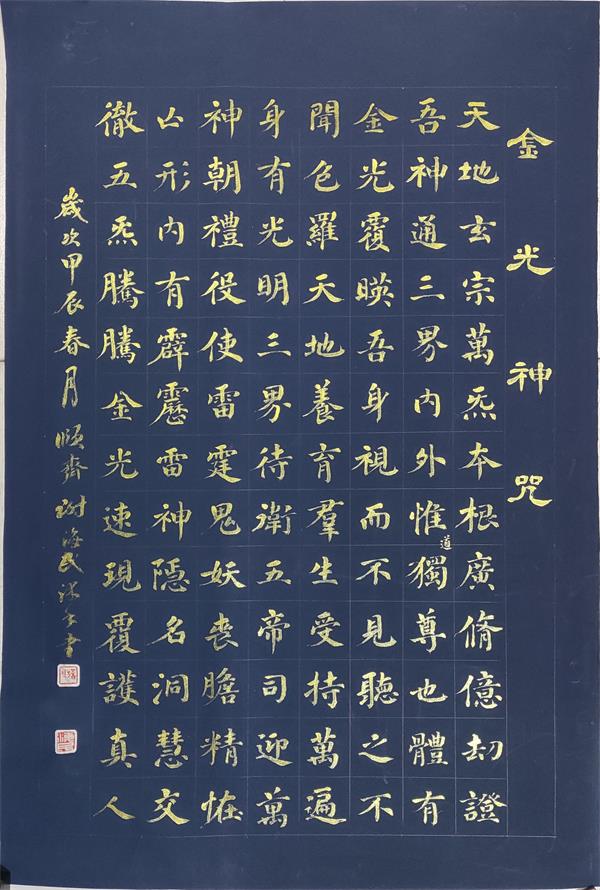 金光神咒
天地玄宗萬炁本根廣脩億刧證
吾神通三界內外惟道獨尊也體有
金光覆暎吾身視而不見聽之不
聞色羅天地養育羣生受持萬遍
身有光明三界待衛五帝司迎萬
神朝禮役使雷霆鬼妖喪膽精恠
亾形內有霹靂雷神隱名洞慧交
徹五炁騰騰金光速現覆護真人
歲次甲辰春月順齊謝海民沐手書